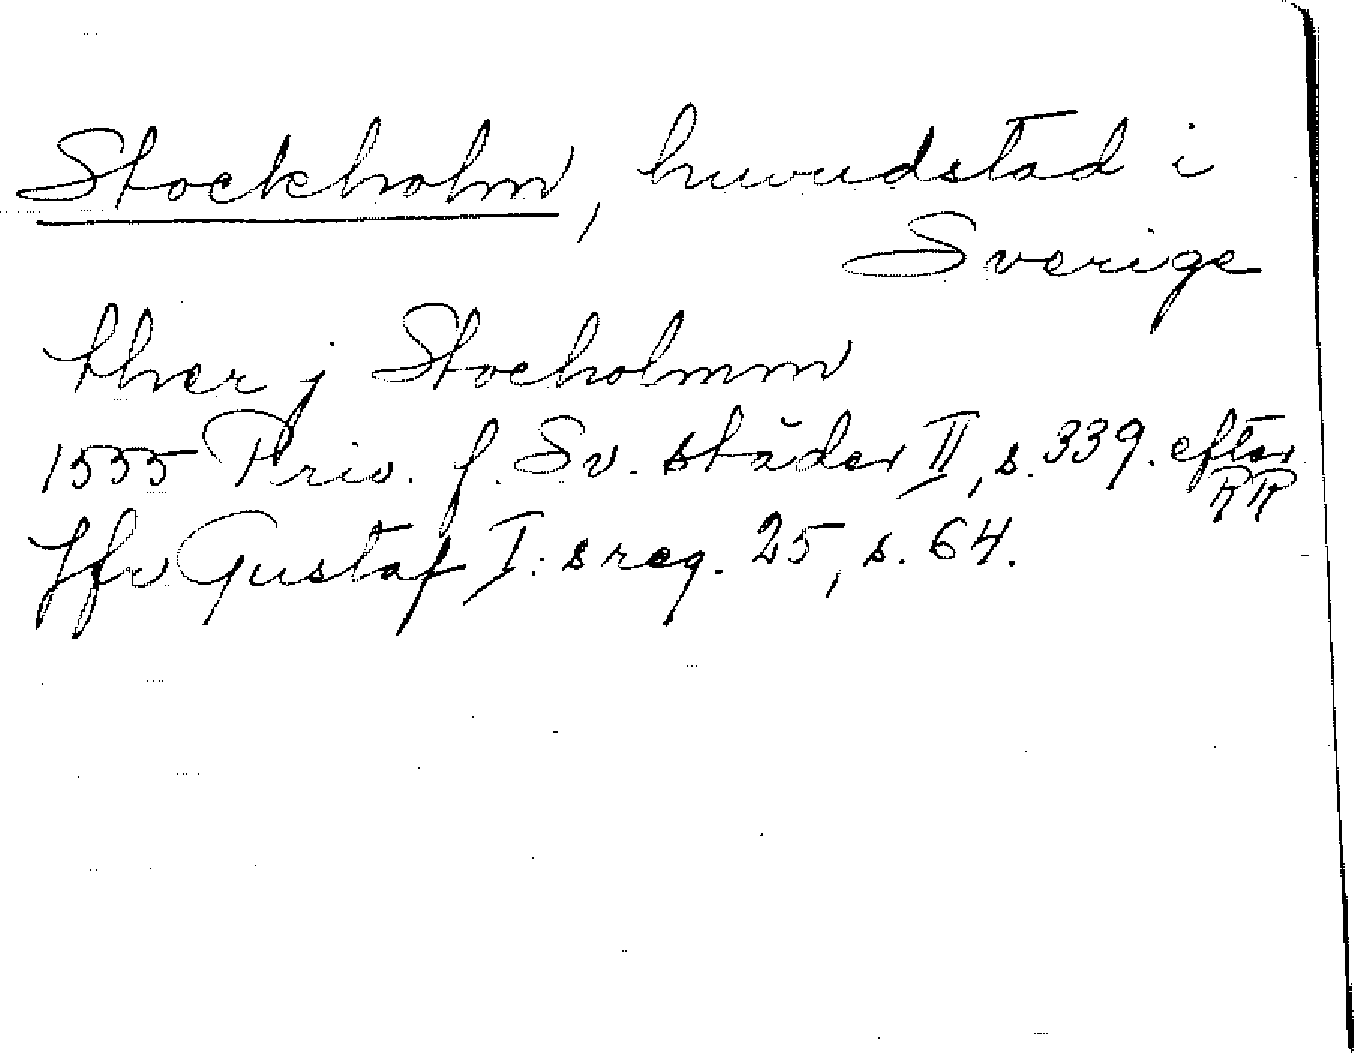 Stockholm, huvudstad i
Sverige
ther j Stocholmm
1555 Priv. f. Sv. städer II, s. 339. efter
RR
Jfr Gustaf I:s reg. 25, s. 64.